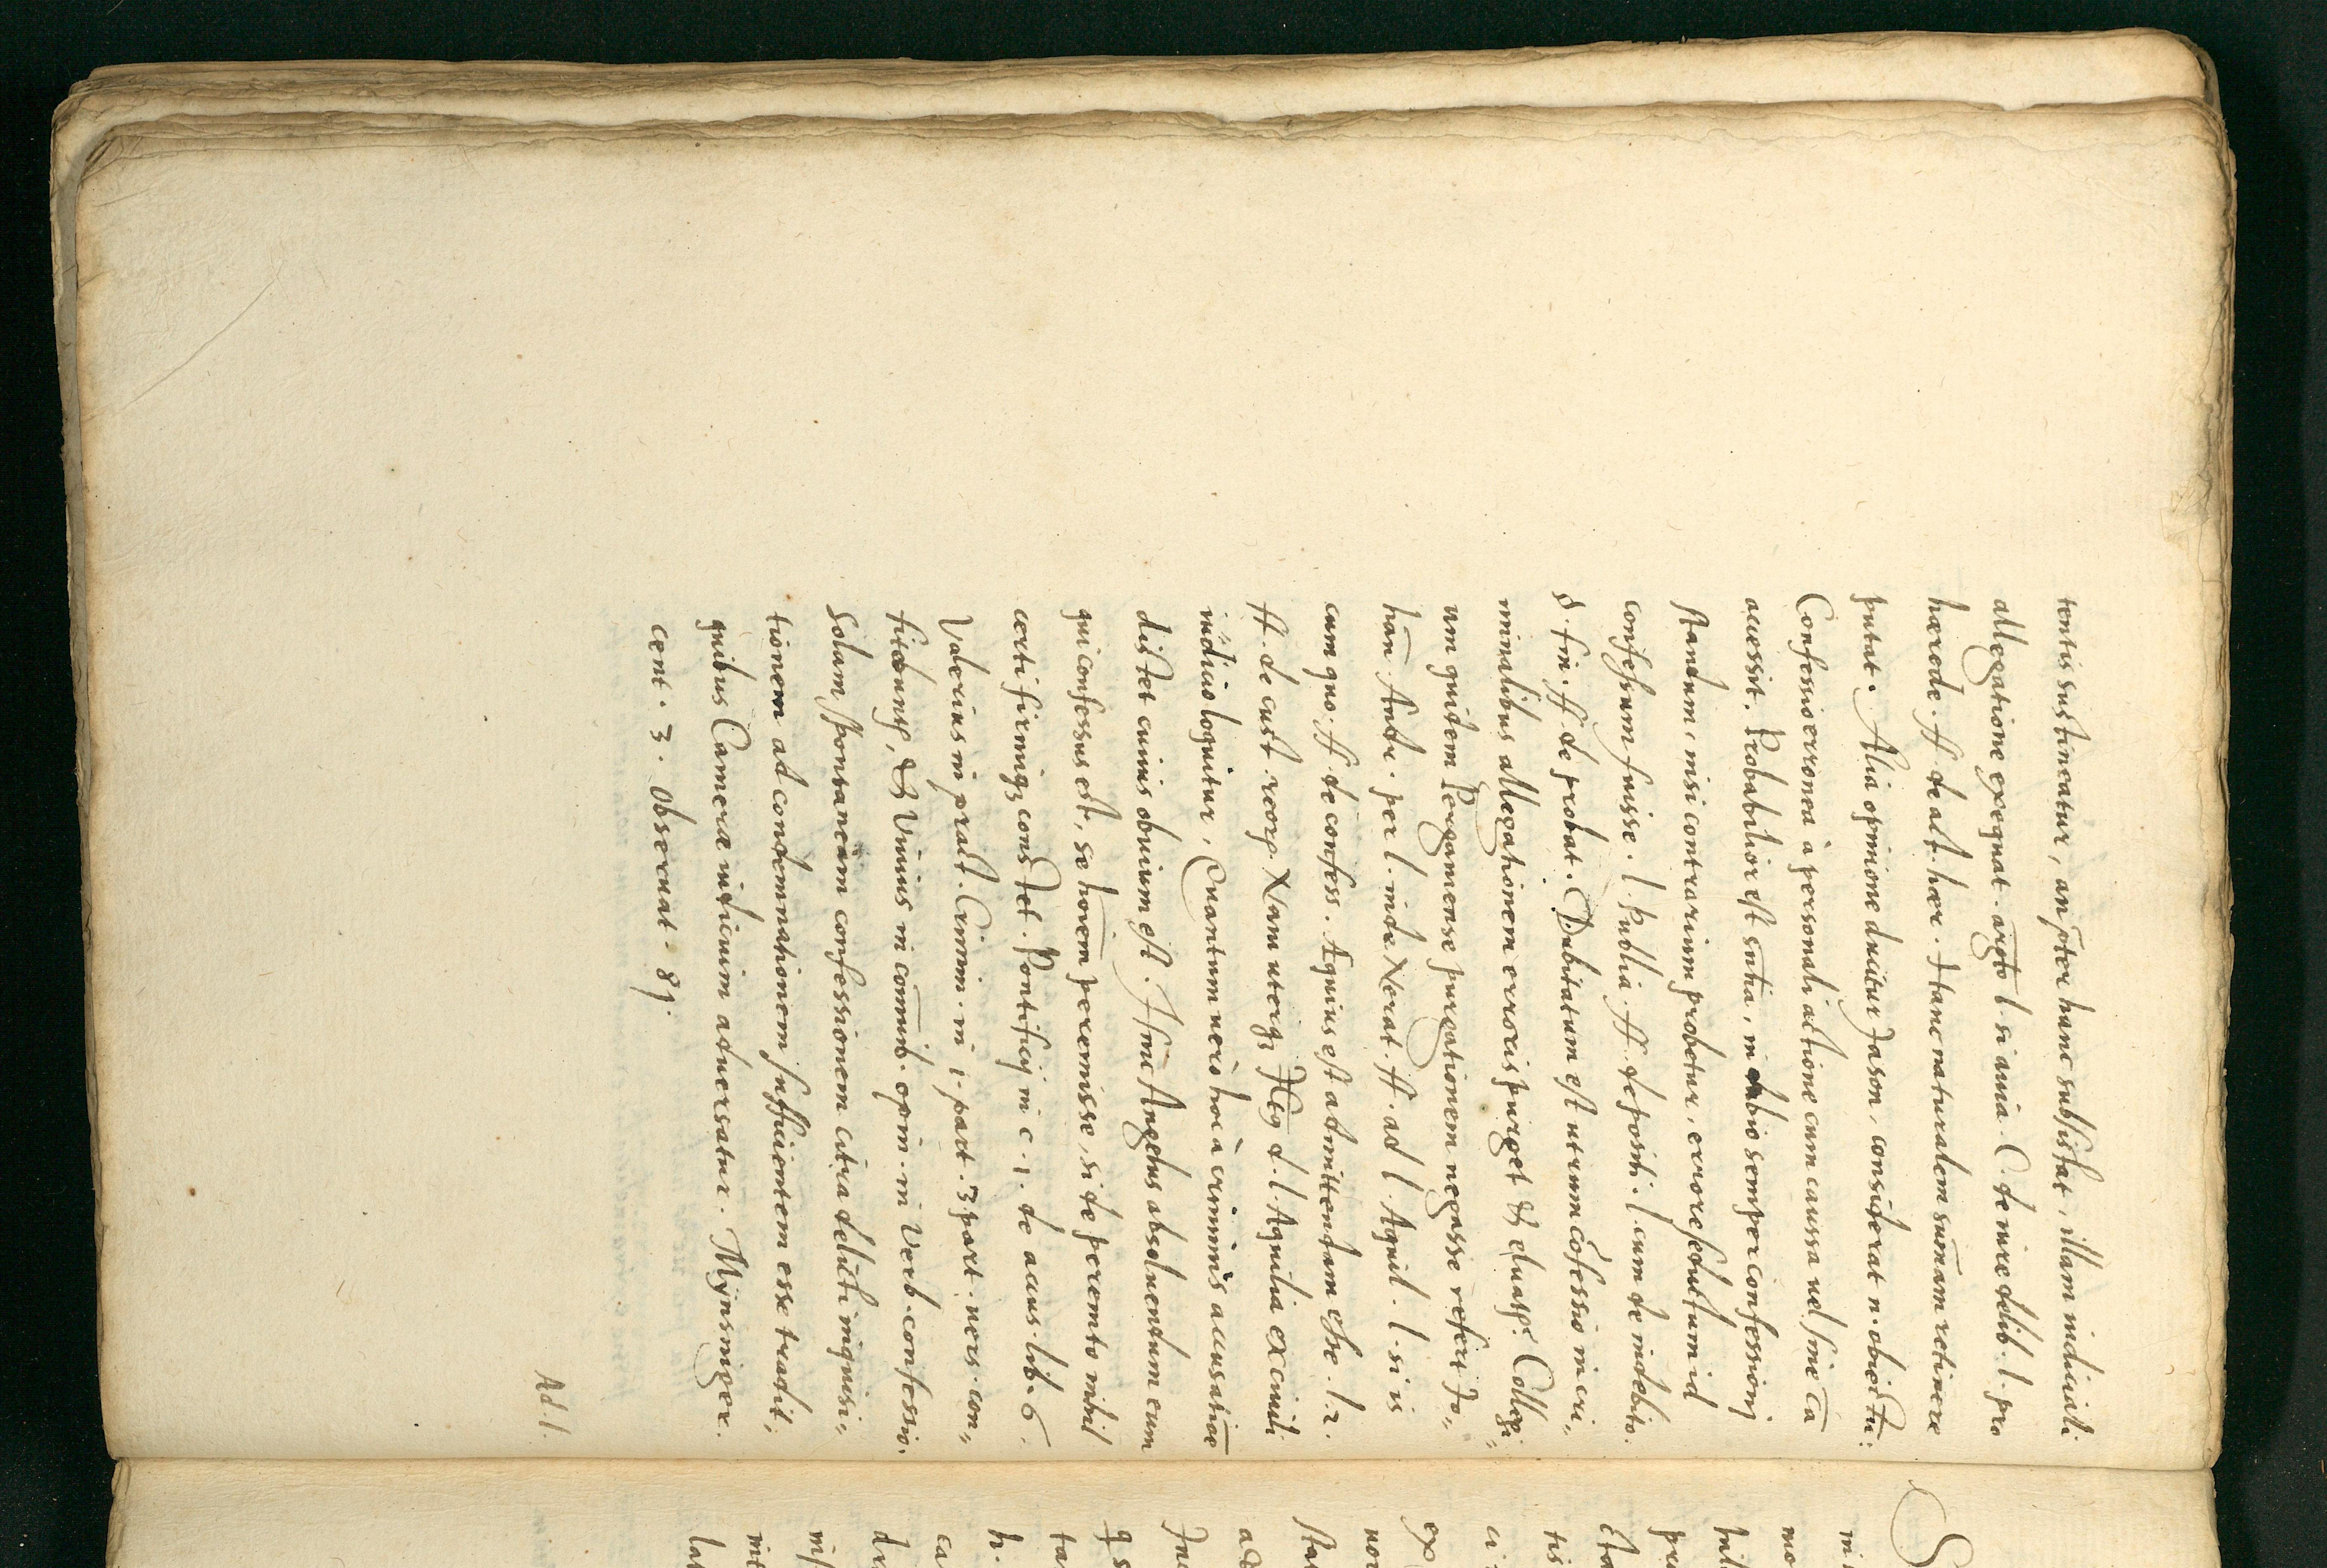 tentis sustineatur, an pter hanc subsistat, illam iudiciali
allegatione exequat. argto l si avia. C. de iure delib. l. pro
hærede. ff de adl. hær. Hanc naturalem suñam retinere
putat. Alia opinione ducitur Jason, considerat n. obiectu:
Confessio erronea à personali actione cum caussa uel sine ca
accessit. Probabilior est sntia, in dubio semper confessionj
standum, nisi contrarium probetur, errore seductum id
confessum fuisse. l. Publia. ff. depositi. l. cum de indebito.
§. fin. ff. de probat. Dubitatum est utrum cõfessio in cri„
minalibus allegationem erroris purget & eluat. Collegi„
um quidem Pergamense purgationem negasse refert Jo„
han Ande. per l. inde Nerat. ff. ad l. Aquil. l. si is
cum quo. ff. de confess. Aequius est admittendam esse. l. 2.
ff. de cust. reorp. Nam uterqz d. l. Aquilia ex ciuili
iudicio loquitur, Quantum uerò hoc à criminis accusatiõe
distet cuiuis obuium est. Hinc Angelus absoluendum eum
qui confessus est, se hoiem peremisse, si de peremto nihil
certi firmiqz constet. Pontificij in c. 1. de accus. lib. 6.
Valerius in pract. Crimin. in i. part. 3 part. uers. con„
fitedunt, & Viuius in commũ. opin. in Verb. confessio.
Solam spontaneam confessionem citra delicti inquisi„
tionem ad condemnationem sufficientem esse tradit,
quibus Cameræ iudicium aduersatur. Mynsinger.
cent. 3. obseruat. 89.
Ad l.
S
m
mo
pul
pu
sta
tis
ci
ex
nor
sta
ad
Ju
q s
ta
h.
ca
du
in
int
lat